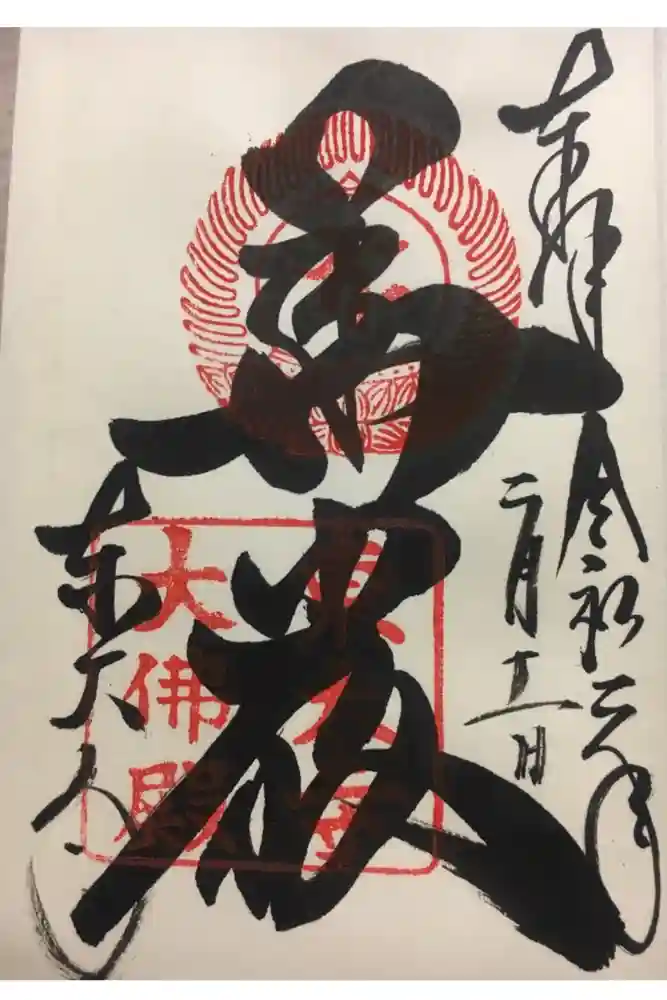 奉拝
令和二年
二月十一日
華厳
東大寺
東大寺
大佛殿